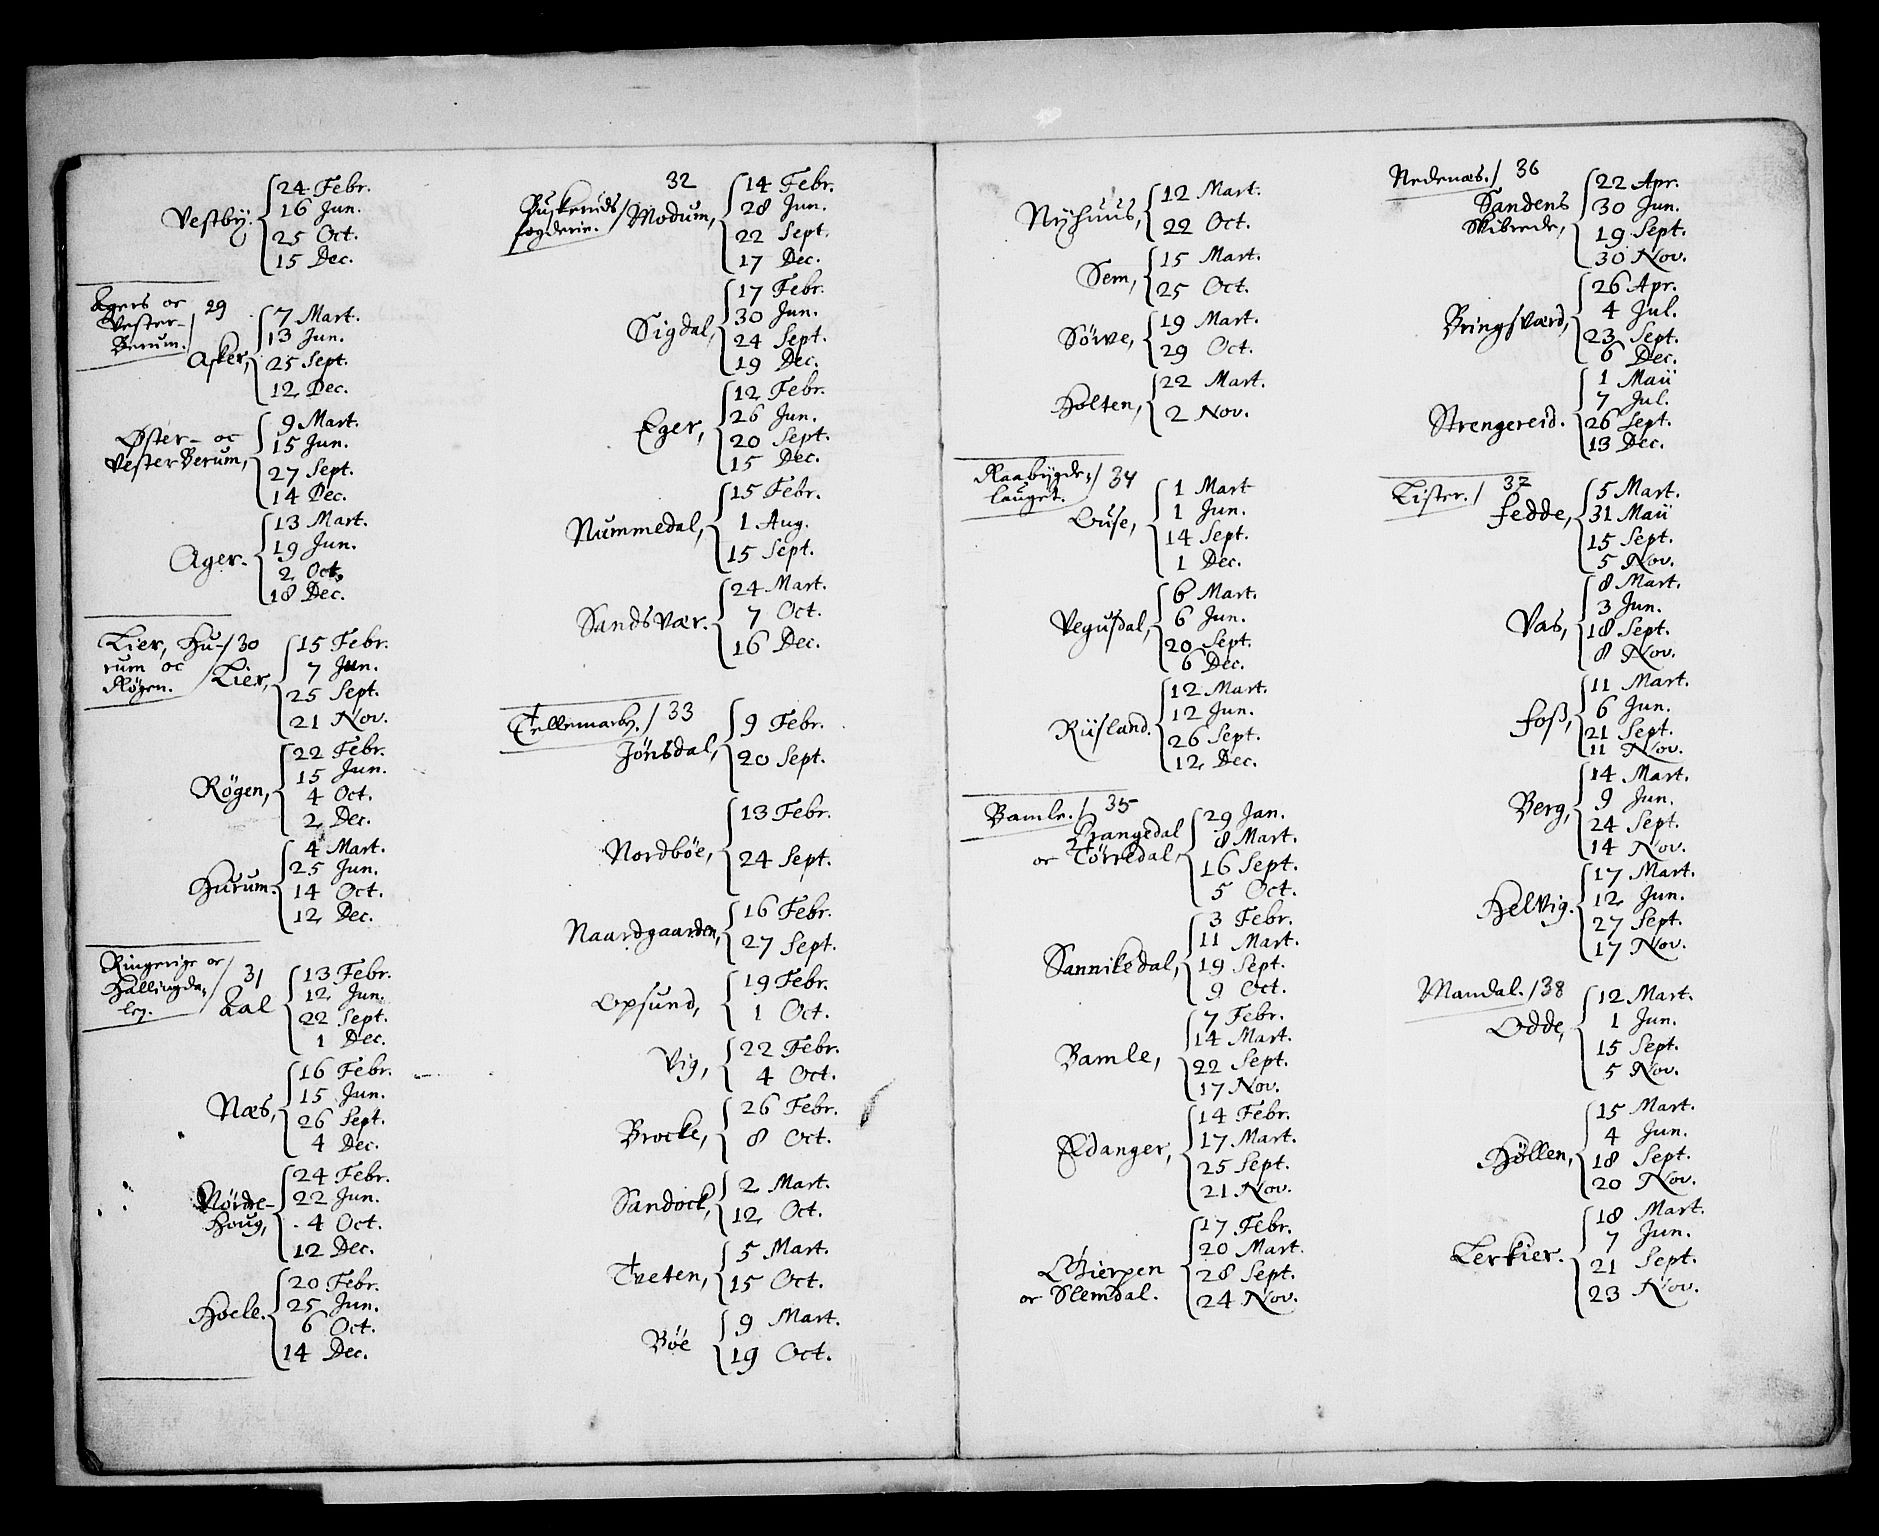 Vestby.
24 Febr.
16 Jun.
25 Oct.
15 Dec.
Agers oc
Vester-
Berum. / 29
Asker,
7 Mart.
13 Jun.
25 Sept.
12 Dec.
Øster- oc
Vester Berum,
9 Mart.
15 Jun.
27 Sept.
14 Dec.
Ager.
13 Mart.
19 Jun.
2 Oct.
18 Dec.
Lier, Hu-/30
rum oc
Røgen. / Lier,
15 Febr.
7 Jun.
25 Sept.
21 Nov.
Røgen,
22 Febr.
15 Jun.
4 Oct.
2 Dec.
Hurum.
4 Mart.
25 Jun.
14 Oct.
12 Dec.
Ringerige oc
Hallingda, / 31
ley. Aal
13 Febr.
12 Jun.
22 Sept.
1 Dec.
Næs,
16 Febr.
15 Jun.
26 Sept.
4 Dec.
Nørde-
houg,
24 Febr.
22 Jun.
4 Oct.
12 Dec.
Hoele.
20 Febr.
25 Jun.
6 Oct.
14 Dec.
32
Buskeruds
fogderie. / Modum,
14 Febr.
28 Jun.
22 Sept.
17 Dec.
Sigdal,
17 Febr.
30 Jun.
24 Sept.
19 Dec.
Eger,
12 Febr.
26 Jun.
20 Sept.
15 Dec.
Nummedal,
15 Febr.
1 Aug.
15 Sept.
Sandsvær.
24 Mart.
7 Oct.
16 Dec.
Tellemarky. / 33
Jønsdal,
9 Febr.
20 Sept.
Nordbøe,
13 Febr.
24 Sept.
Naardgaarden,
16 Febr.
27 Sept.
Opsund,
19 Febr.
1 Oct.
Vig,
22 Febr.
4 Oct.
Brocke,
26 Febr.
8 Oct.
Sandock,
2 Mart.
12 Oct.
Tveten,
5 Mart.
15 Oct.
Bøe
9 Mart.
19 Oct.
Nyhuus,
12 Mart.
22 Oct.
Sem,
15 Mart.
25 Oct.
Sørve,
19 Mart.
29 Oct.
Holten,
22 Mart.
2 Nov.
Raabygde, / 34
lauget.
Ouse,
1 Mart
1 Jun.
14 Sept.
1 Dec.
Vegusdal,
6 Mart.
6 Jun.
20 Sept.
6 Dec.
Riisland.
12 Mart.
12 Jun.
26 Sept.
12 Dec.
Bamle. / 35
Drangedal
oc Tørredal,
29 Jan.
8 Mart.
16 Sept.
5 Oct.
Sannikedal,
3 Febr.
11 Mart.
19 Sept.
9 Oct.
Bamle,
7 Febr.
14 Mart.
22 Sept.
17 Nov.
Edanger,
14 Febr.
17 Mart.
25 Sept.
21 Nov.
Gierpen
oc Slemdal.
17 Febr.
20 Mart.
28 Sept.
24 Nov.
Nedenæs. / 36
Sandens
Skibrede,
22 Apr.
30 Jun.
19 Sept.
30 Nov.
Bringsværd,
26 Apr.
4 Jul.
23 Sept.
6 Dec.
Strengereid.
1 Maii
7 Jul.
26 Sept.
13 Dec.
Lister. / 37
Fedde,
5 Mart.
31 Maii
15 Sept.
5 Nov.
Vas,
8 Mart.
3 Jun.
18 Sept.
8 Nov.
Foss,
11 Mart.
6 Jun.
21 Sept.
11 Nov.
Berg,
14 Mart.
9 Jun.
24 Sept.
14 Nov.
Helvig.
17 Mart.
12 Jun.
27 Sept.
17 Nov.
Mandal. / 38
Odde,
12 Mart.
1 Jun.
15 Sept.
5 Nov.
Høllen,
15 Mart.
4 Jun.
18 Sept.
20 Nov.
Lerkier.
18 Mart.
7 Jun.
21 Sept.
23 Nov.